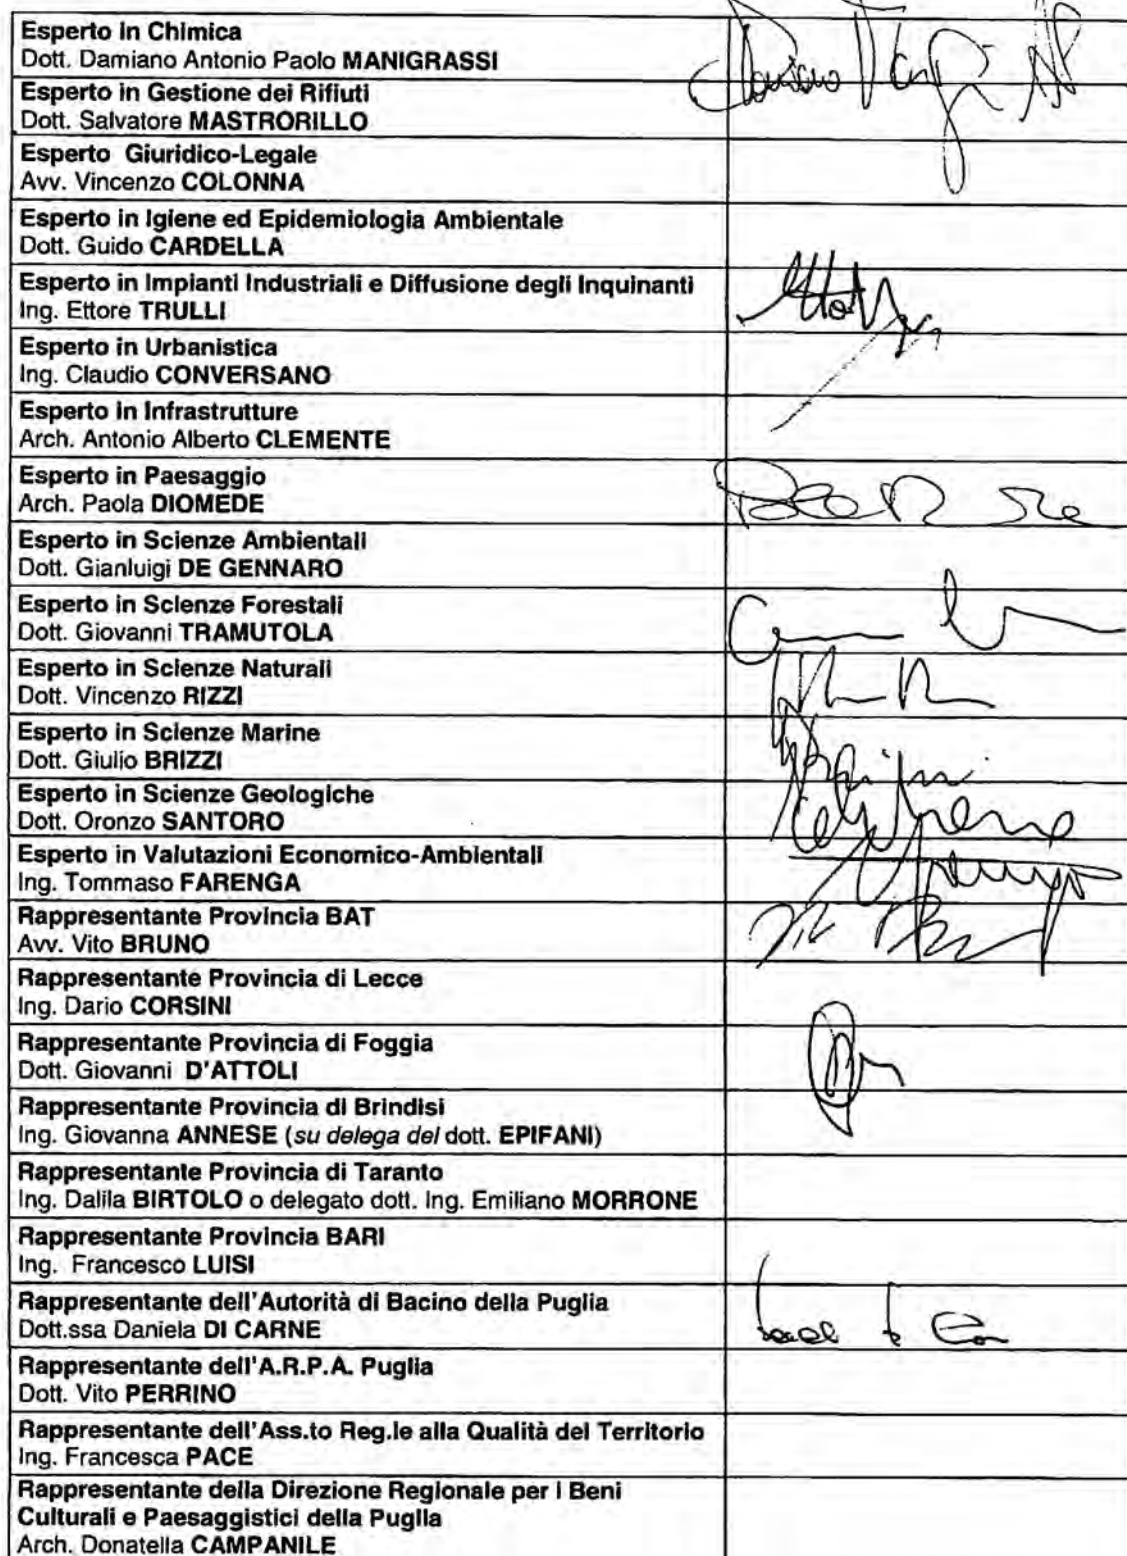 Esperto in Chimica
Dott. Damiano Antonio Paolo MANIGRASSI
Esperto in Gestione dei Rifiuti
Dott. Salvatore MASTRORILLO
Esperto Giuridico-Legale
Avv. Vincenzo COLONNA
Esperto in Igiene ed Epidemiologia Ambientale
Dott. Guido CARDELLA
Esperto in Impianti Industriali e Diffusione degli Inquinanti
Ing. Ettore TRULLI
Esperto in Urbanistica
Ing. Claudio CONVERSANO
Esperto in Infrastrutture
Arch. Antonio Alberto CLEMENTE
Esperto in Paesaggio
Arch. Paola DIOMEDE
Esperto in Scienze Ambientali
Dott. Gianluigi DE GENNARO
Esperto in Scienze Forestali
Dott. Giovanni TRAMUTOLA
Esperto in Scienze Naturali
Dott. Vincenzo RIZZI
Esperto in Scienze Marine
Dott. Giulio BRIZZI
Esperto in Scienze Geologiche
Dott. Oronzo SANTORO
Esperto in Valutazioni Economico-Ambientali
Ing. Tommaso FARENGA
Rappresentante Provincia BAT
Avv. Vito BRUNO
Rappresentante Provincia di Lecce
Ing. Dario CORSINI
Rappresentante Provincia di Foggia
Dott. Giovanni D'ATTOLI
Rappresentante Provincia di Brindisi
Ing. Giovanna ANNESE (su delega del dott. EPIFANI)
Rappresentante Provincia di Taranto
Ing. Dalila BIRTOLO o delegato dott. Ing. Emiliano MORRONE
Rappresentante Provincia BARI
Ing. Francesco LUISI
Rappresentante dell'Autorità di Bacino della Puglia
Dott.ssa Daniela DI CARNE
Rappresentante dell'A.R.P.A. Puglia
Dott. Vito PERRINO
Rappresentante dell'Ass.to Reg.le alla Qualità del Territorio
Ing. Francesca PACE
Rappresentante della Direzione Regionale per i Beni
Culturali e Paesaggistici della Puglia
Arch. Donatella CAMPANILE